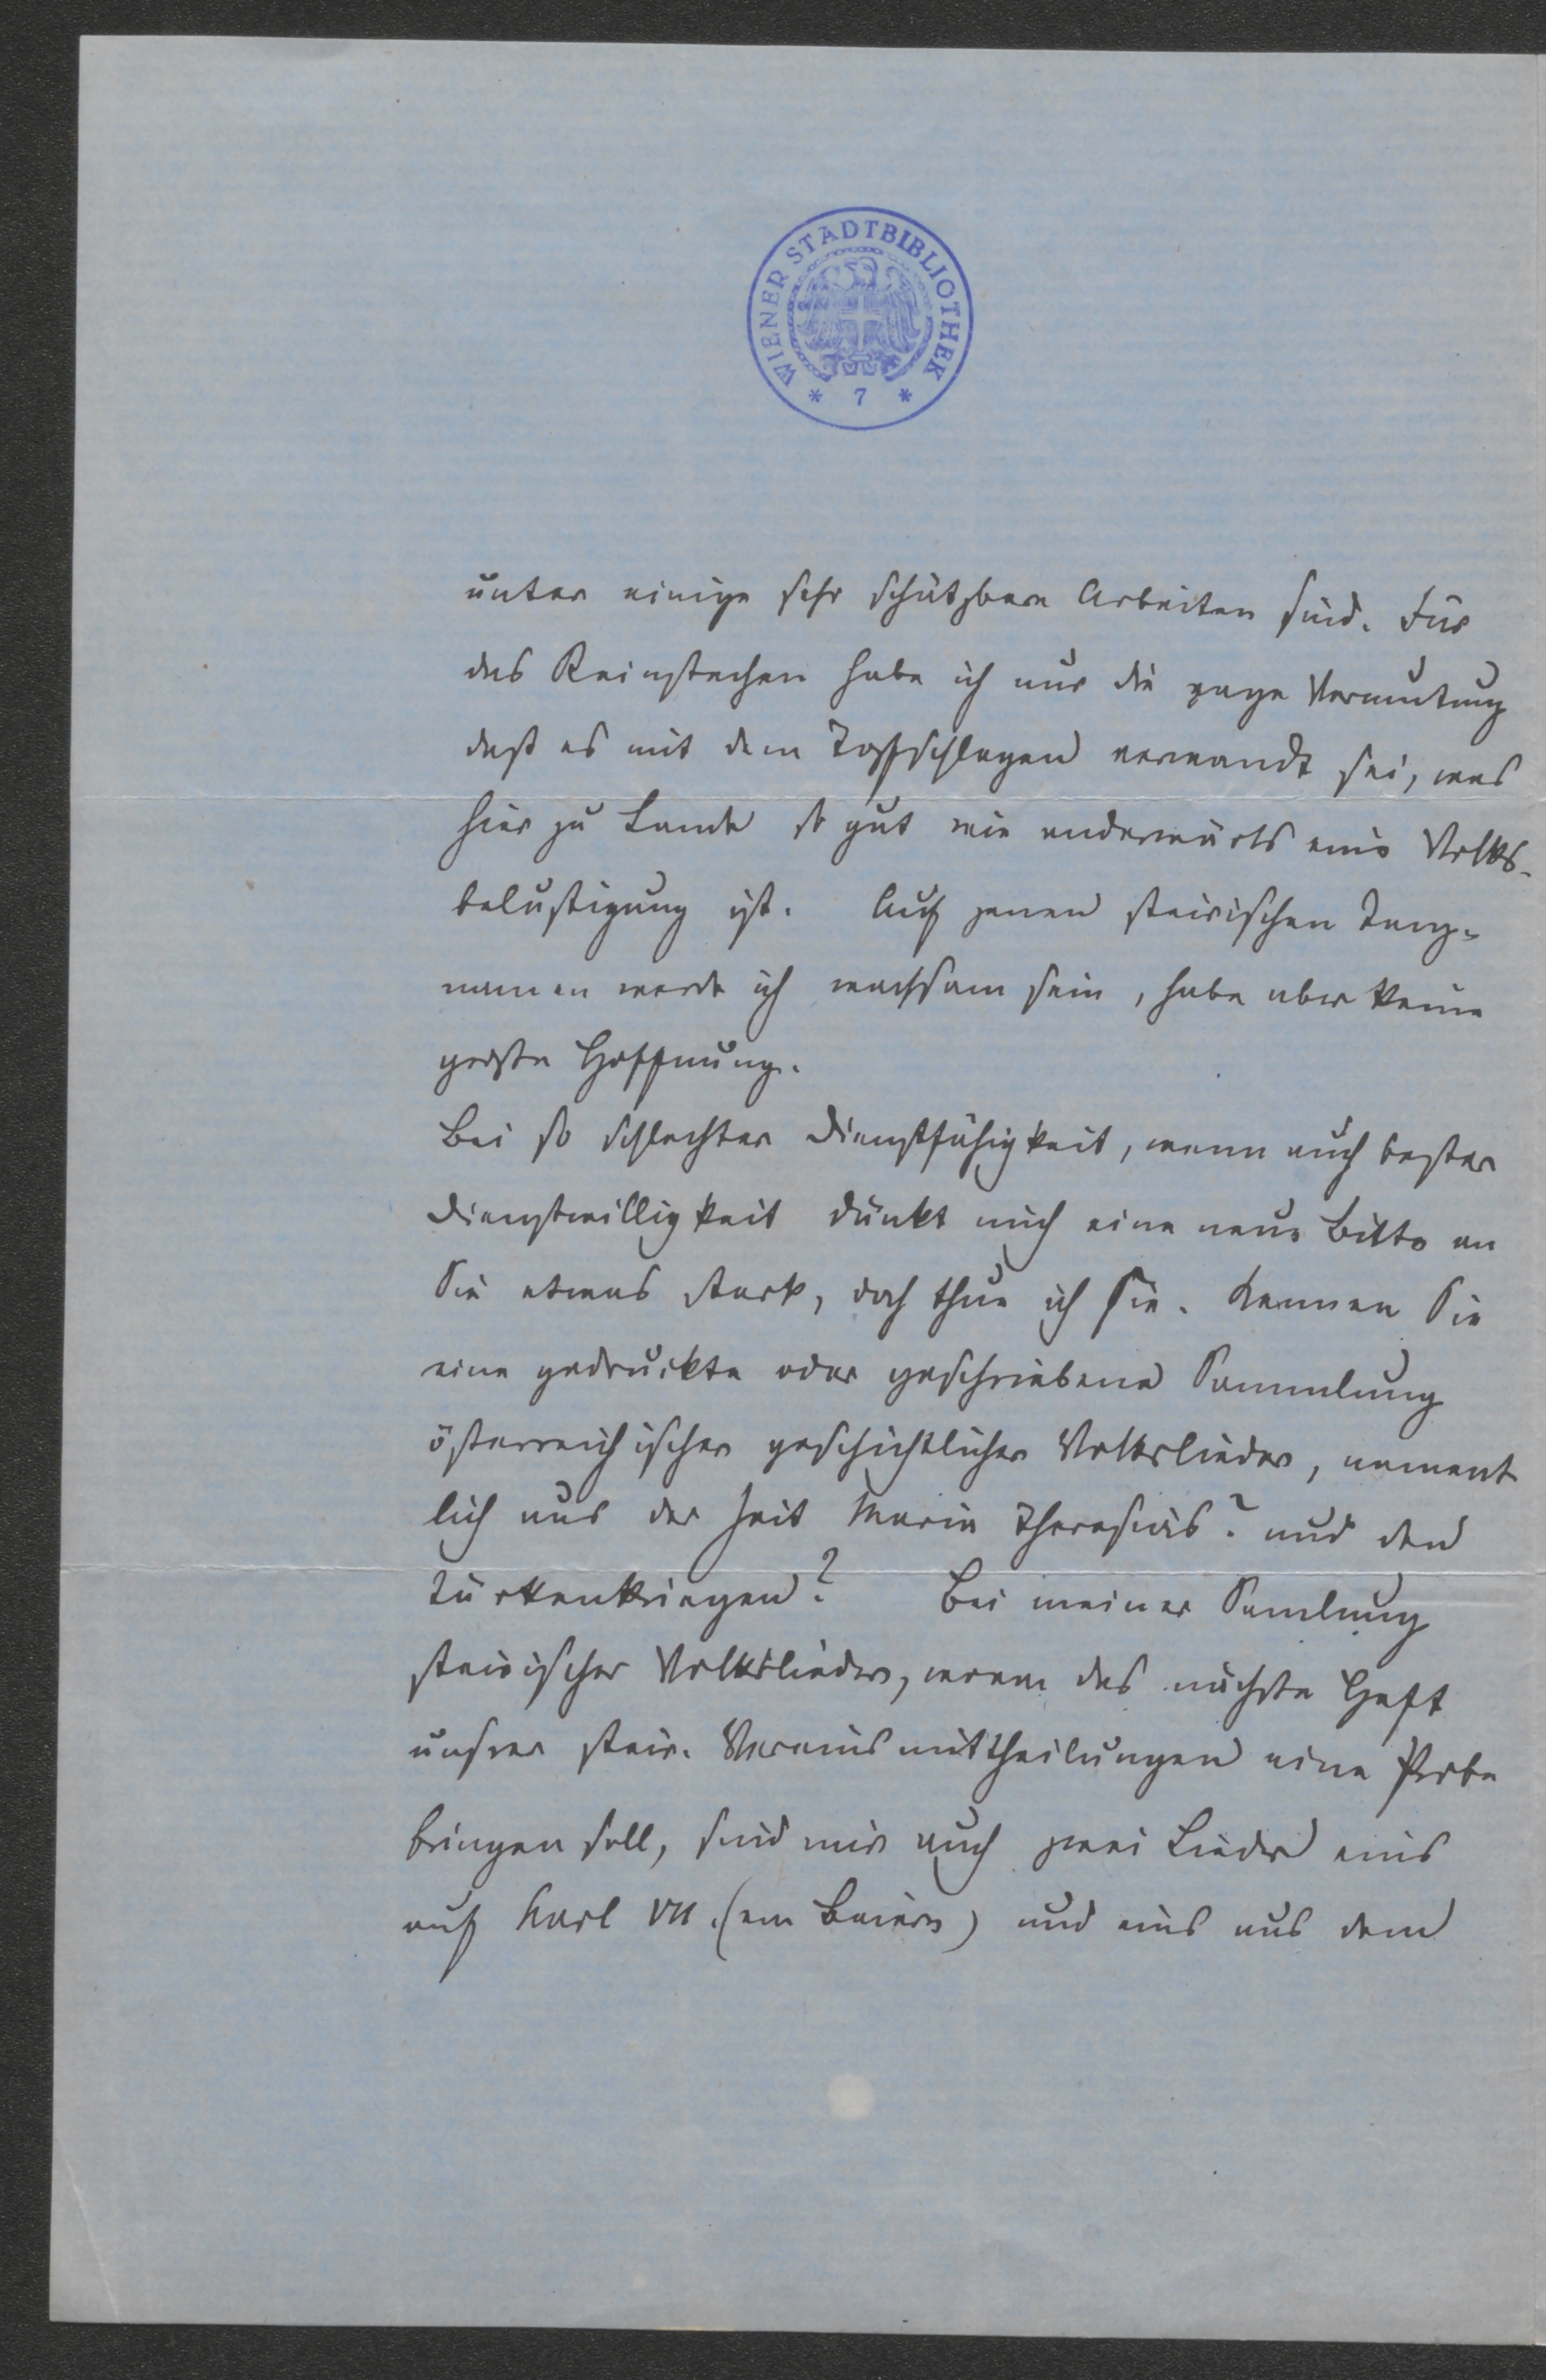 WIENER STÄDTBIBLIOTHEK
* 7 *
unter einige sehr schätzbare Arbeiten sind. Für
das Reinstechen habe ich nur die vage Vermutung
daß es mit dem Topfschlagen verwandt sei, was
hier zu Lande so gut wie anderwärts eine Volks-
belustigung ist. Auf jenen steirischen Tanz-
namen werde ich wachsam sein, habe aber keine
große Hoffnung.
Bei so schlechter Dienstfähigkeit, wenn auch bester
Dienstwilligkeit dünkt mich eine neue Bitte an
Sie etwas stark, doch thue ich sie. Kennen Sie
eine gedruckte oder geschriebene Sammlung
österreichischer geschichtlicher Volkslieder, nament
lich aus der Zeit Maria Theresias? und den
Türkenkriegen? Bei meiner Samlung
steirischer Volkslieder, wovon das nächste Heft
unsrer steir. Vereinsmittheilungen eine Probe
bringen soll, sind mir auch zwei Lieder eins
auf Karl VII. (von Baiern) und eins aus dem